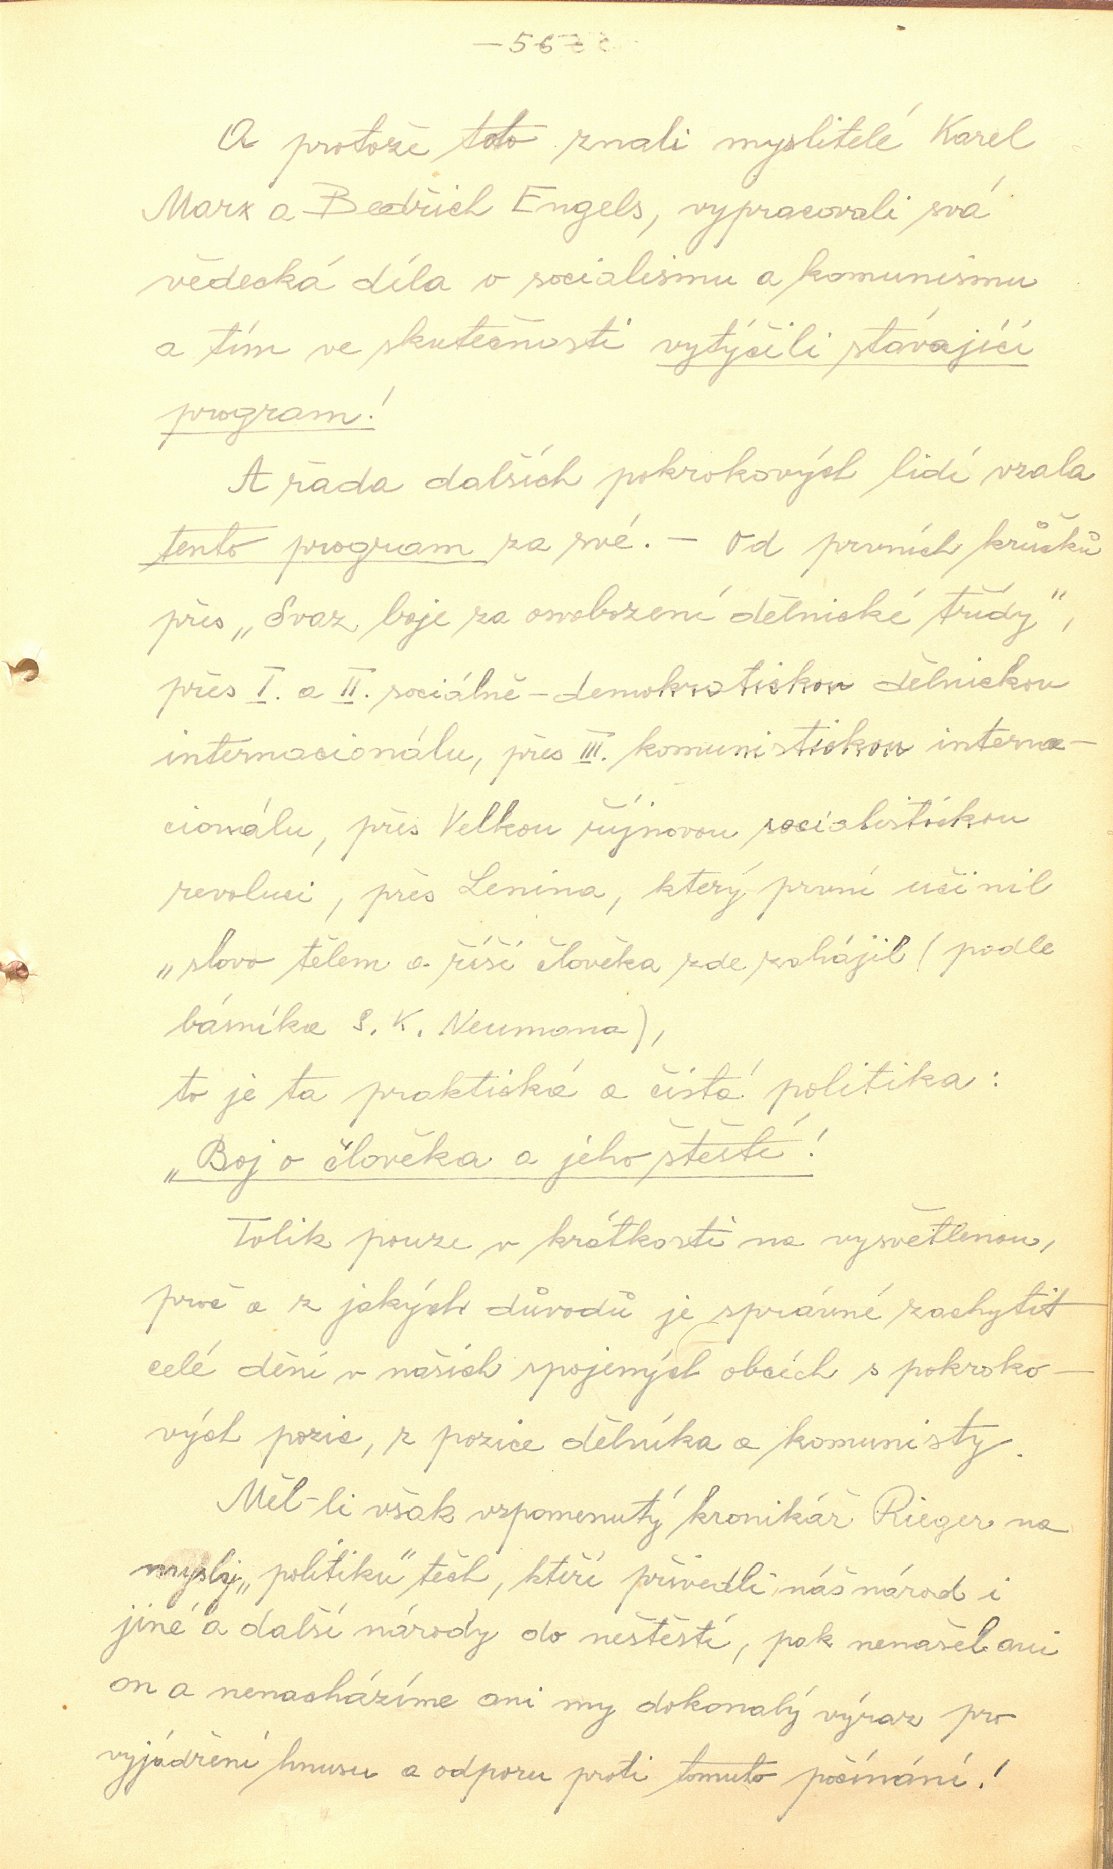 A protože toto znali myslitelé Karel
Marx a Bedřich Engels, vypracovali svá
vědecká díla o socialismu a komunismu
a tím ve skutečnosti vytýčili stávající
program!
A řada dalších pokrokových lidí vzala
tento program za své. - Od prvních krůčků
přes „Svaz boje za osvobození dělnické třídy",
přes I. a II. sociálně-demokratickou dělnickou
internacionálu, přes III. komunistickou interna-
cionálu, přes Velkou říjnovou socialistickou
revoluci, přes Lenina, který první učinil
„slovo tělem a říši člověka zde zahájil (podle
básníka S. K. Neumana),
to je ta praktická a čistá politika:
„Boj o člověka a jeho štěstí!
Tolik pouze v krátkosti na vysvětlenou,
proč a z jakých důvodů je správné zachytit
celé dění v našich spojených obcích s pokroko-
vých pozic, z pozice dělníka a komunisty.
Měl-li však vzpomenutý kronikář Rieger na
mysli „politiku" těch, kteří přivedli náš národ i
jiné a další národy do neštěstí, pak nenašel ani
on a nenacházíme ani my dokonalý výraz pro
vyjádření hnusu a odporu proti tomuto počínání!